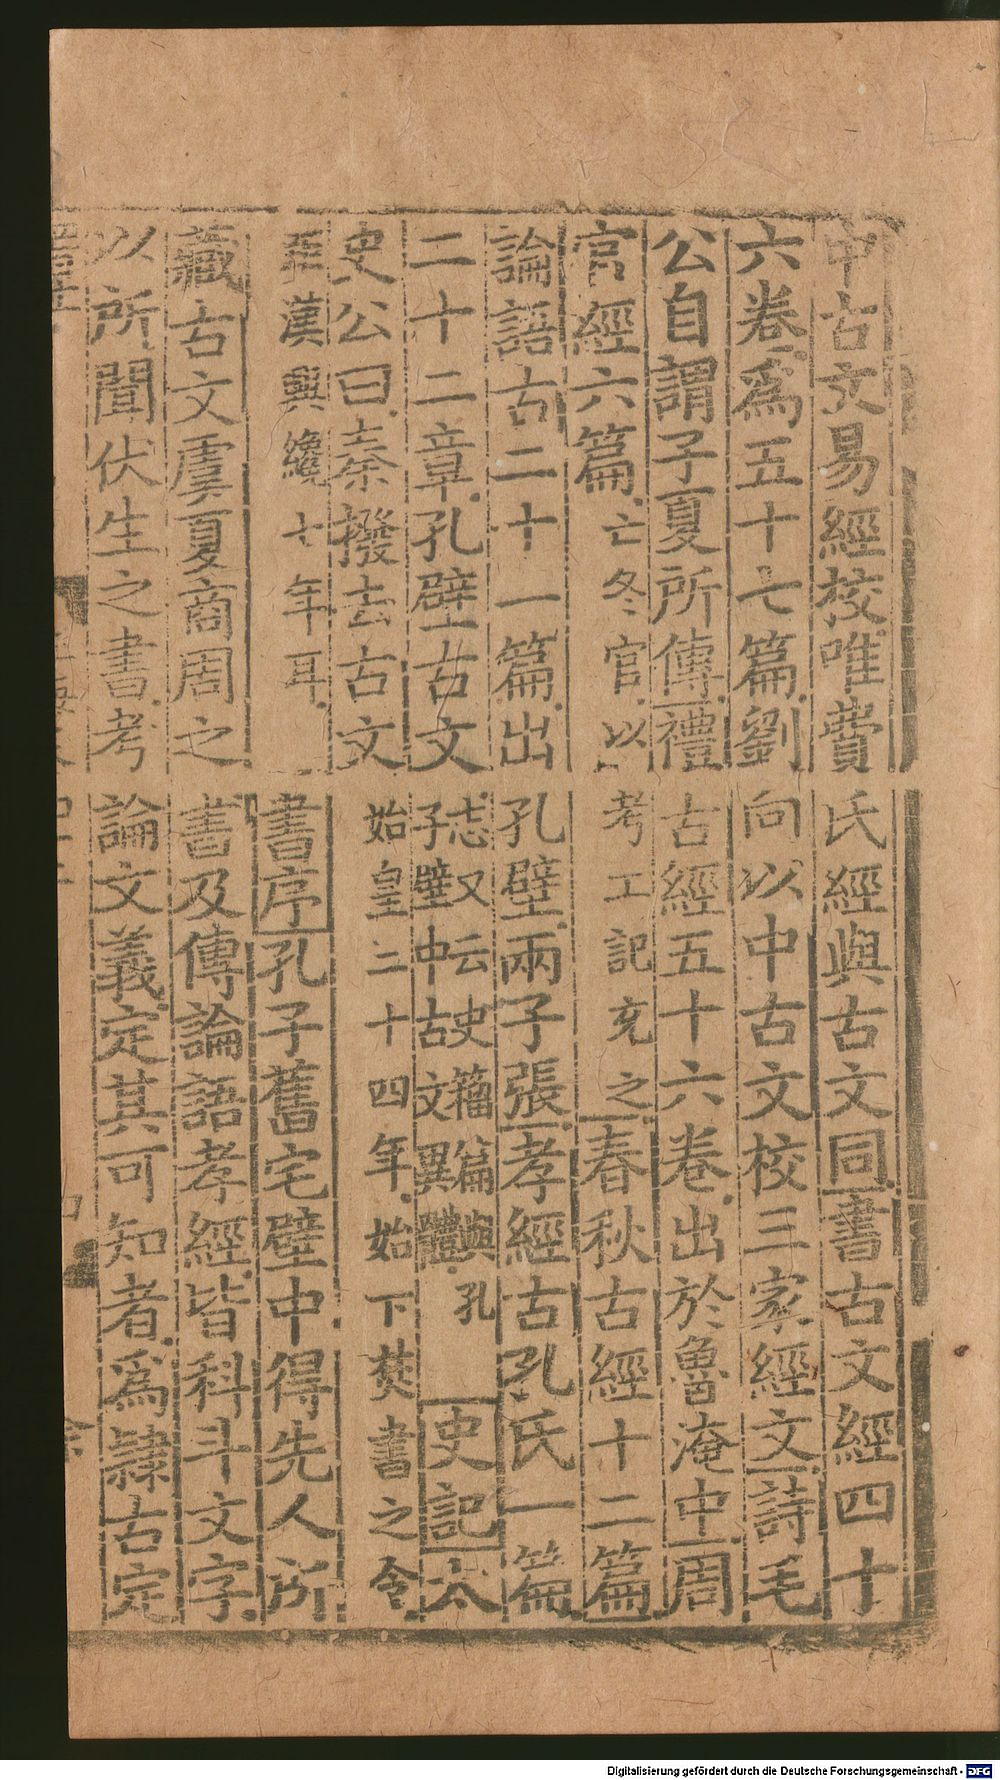 中古文易經校唯費氏經與古文同書古文經四十
六卷爲五十七篇劉向以中古文校三家經文詩毛
公自謂子夏所傳禮古經五十六卷出於魯淹中周
官經六篇亡冬官以考工記充之春秋古經十二篇
論語古二十一篇出孔壁兩子張孝經古孔氏一篇
二十二章孔壁古文
志又云史籀篇與孔
子壁中古文異體
史記太
史公曰秦撥去古文始皇二十四年始下焚書之令
至漢興纔七年耳書序孔子舊宅壁中得先人所
藏古文虞夏商周之書及傳論語孝經皆科斗文字
以所聞伏生之書考論文義定其可知者爲隸古定
Digitalisierung gefördert durch die Deutsche Forschungsgemeinschaft - DFG